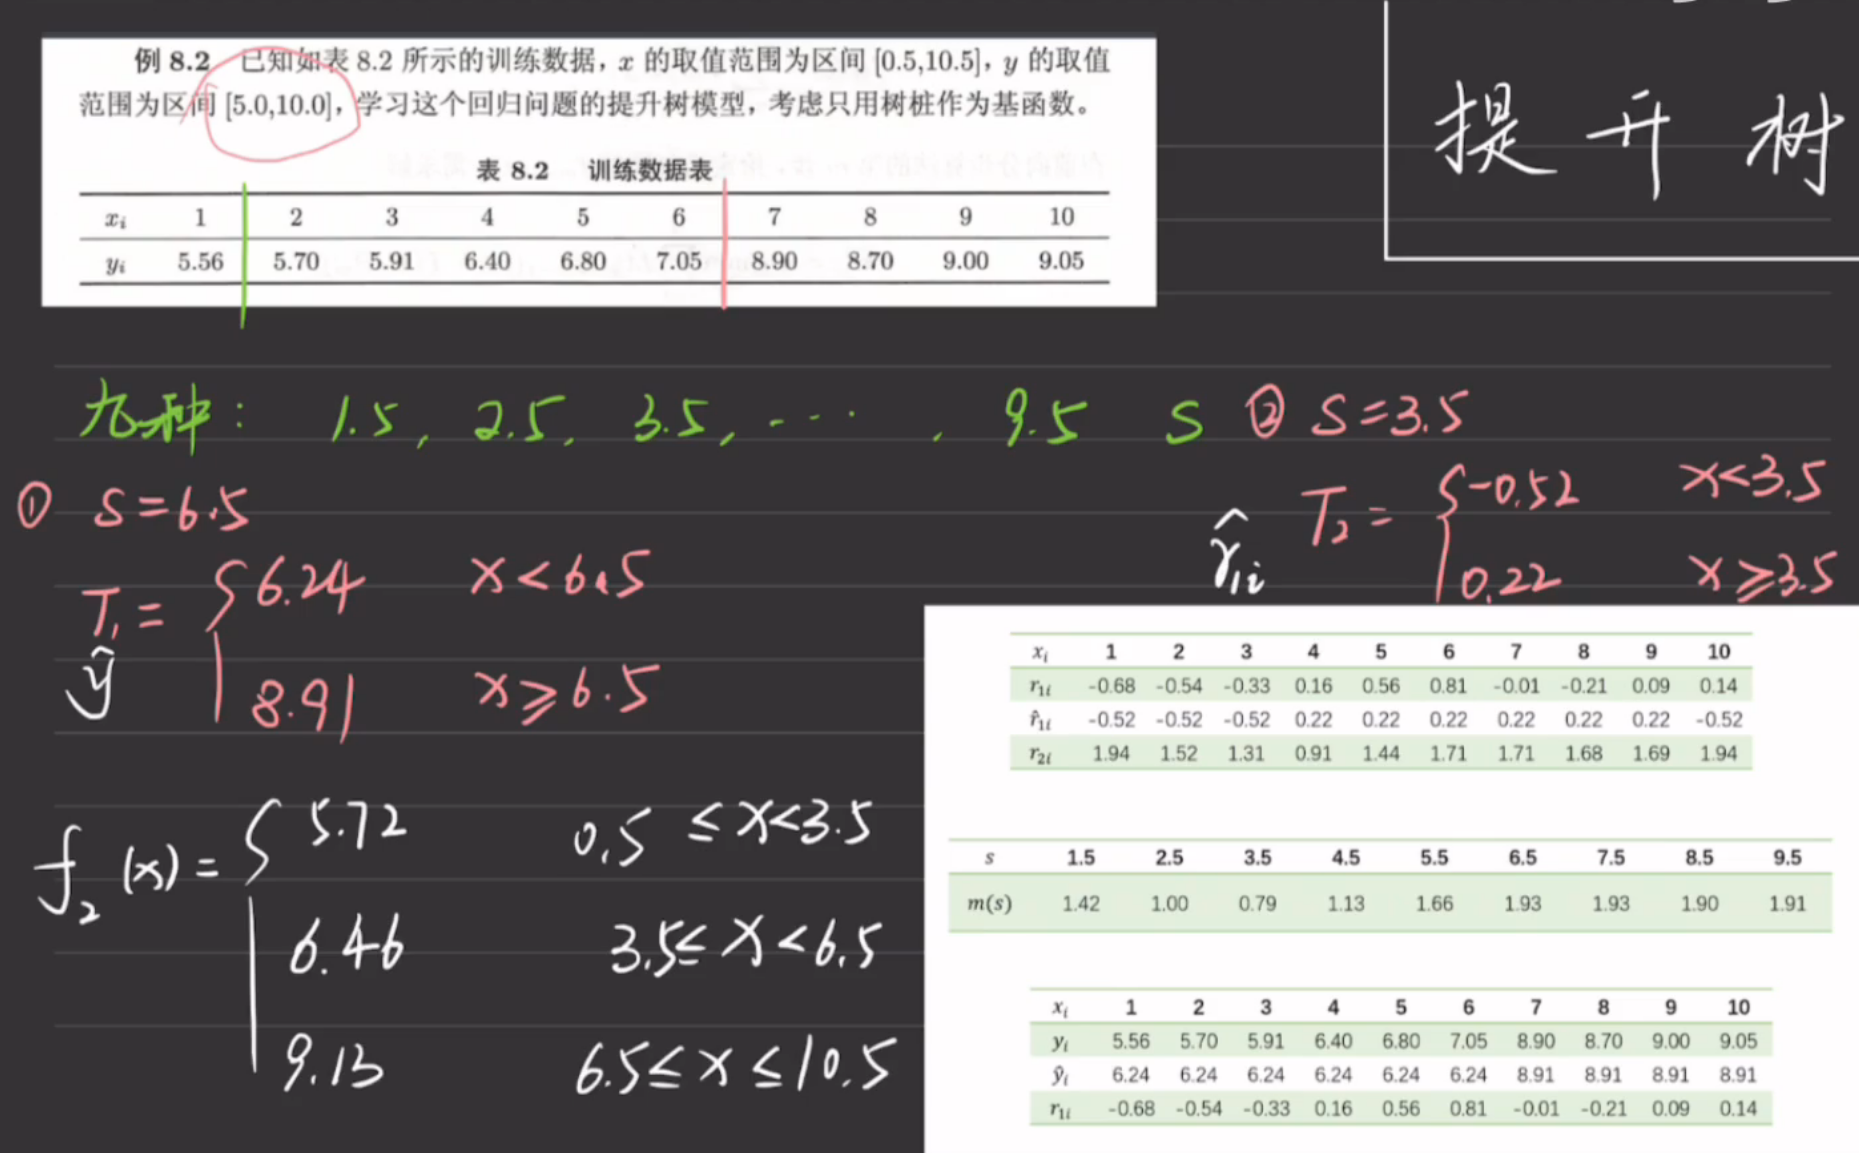 例 8.2 已知如表 8.2 所示的训练数据，x 的取值范围为区间 [0.5,10.5]，y 的取值
范围为区间 [5.0,10.0]，学习这个回归问题的提升树模型，考虑只用树桩作为基函数。
表 8.2 训练数据表
xᵢ 1 2 3 4 5 6 7 8 9 10
yᵢ 5.56 5.70 5.91 6.40 6.80 7.05 8.90 8.70 9.00 9.05
提升树
九种: 1.5, 2.5, 3.5, ··· , 9.5 S
① S=6.5
T₁ = { 6.24 x<6.5
8.91 x≥6.5
ŷ
② S=3.5
T₂ = { -0.52 x<3.5
0.22 x≥3.5
r̂₁ᵢ
f₂(x) = { 5.72 0.5≤x<3.5
6.46 3.5≤x<6.5
9.13 6.5≤x≤10.5
xᵢ 1 2 3 4 5 6 7 8 9 10
r₁ᵢ -0.68 -0.54 -0.33 0.16 0.56 0.81 -0.01 -0.21 0.09 0.14
r̂₁ᵢ -0.52 -0.52 -0.52 0.22 0.22 0.22 0.22 0.22 0.22 -0.52
r₂ᵢ 1.94 1.52 1.31 0.91 1.44 1.71 1.71 1.68 1.69 1.94
s 1.5 2.5 3.5 4.5 5.5 6.5 7.5 8.5 9.5
m(s) 1.42 1.00 0.79 1.13 1.66 1.93 1.93 1.90 1.91
xᵢ 1 2 3 4 5 6 7 8 9 10
yᵢ 5.56 5.70 5.91 6.40 6.80 7.05 8.90 8.70 9.00 9.05
ŷᵢ 6.24 6.24 6.24 6.24 6.24 6.24 8.91 8.91 8.91 8.91
r₁ᵢ -0.68 -0.54 -0.33 0.16 0.56 0.81 -0.01 -0.21 0.09 0.14